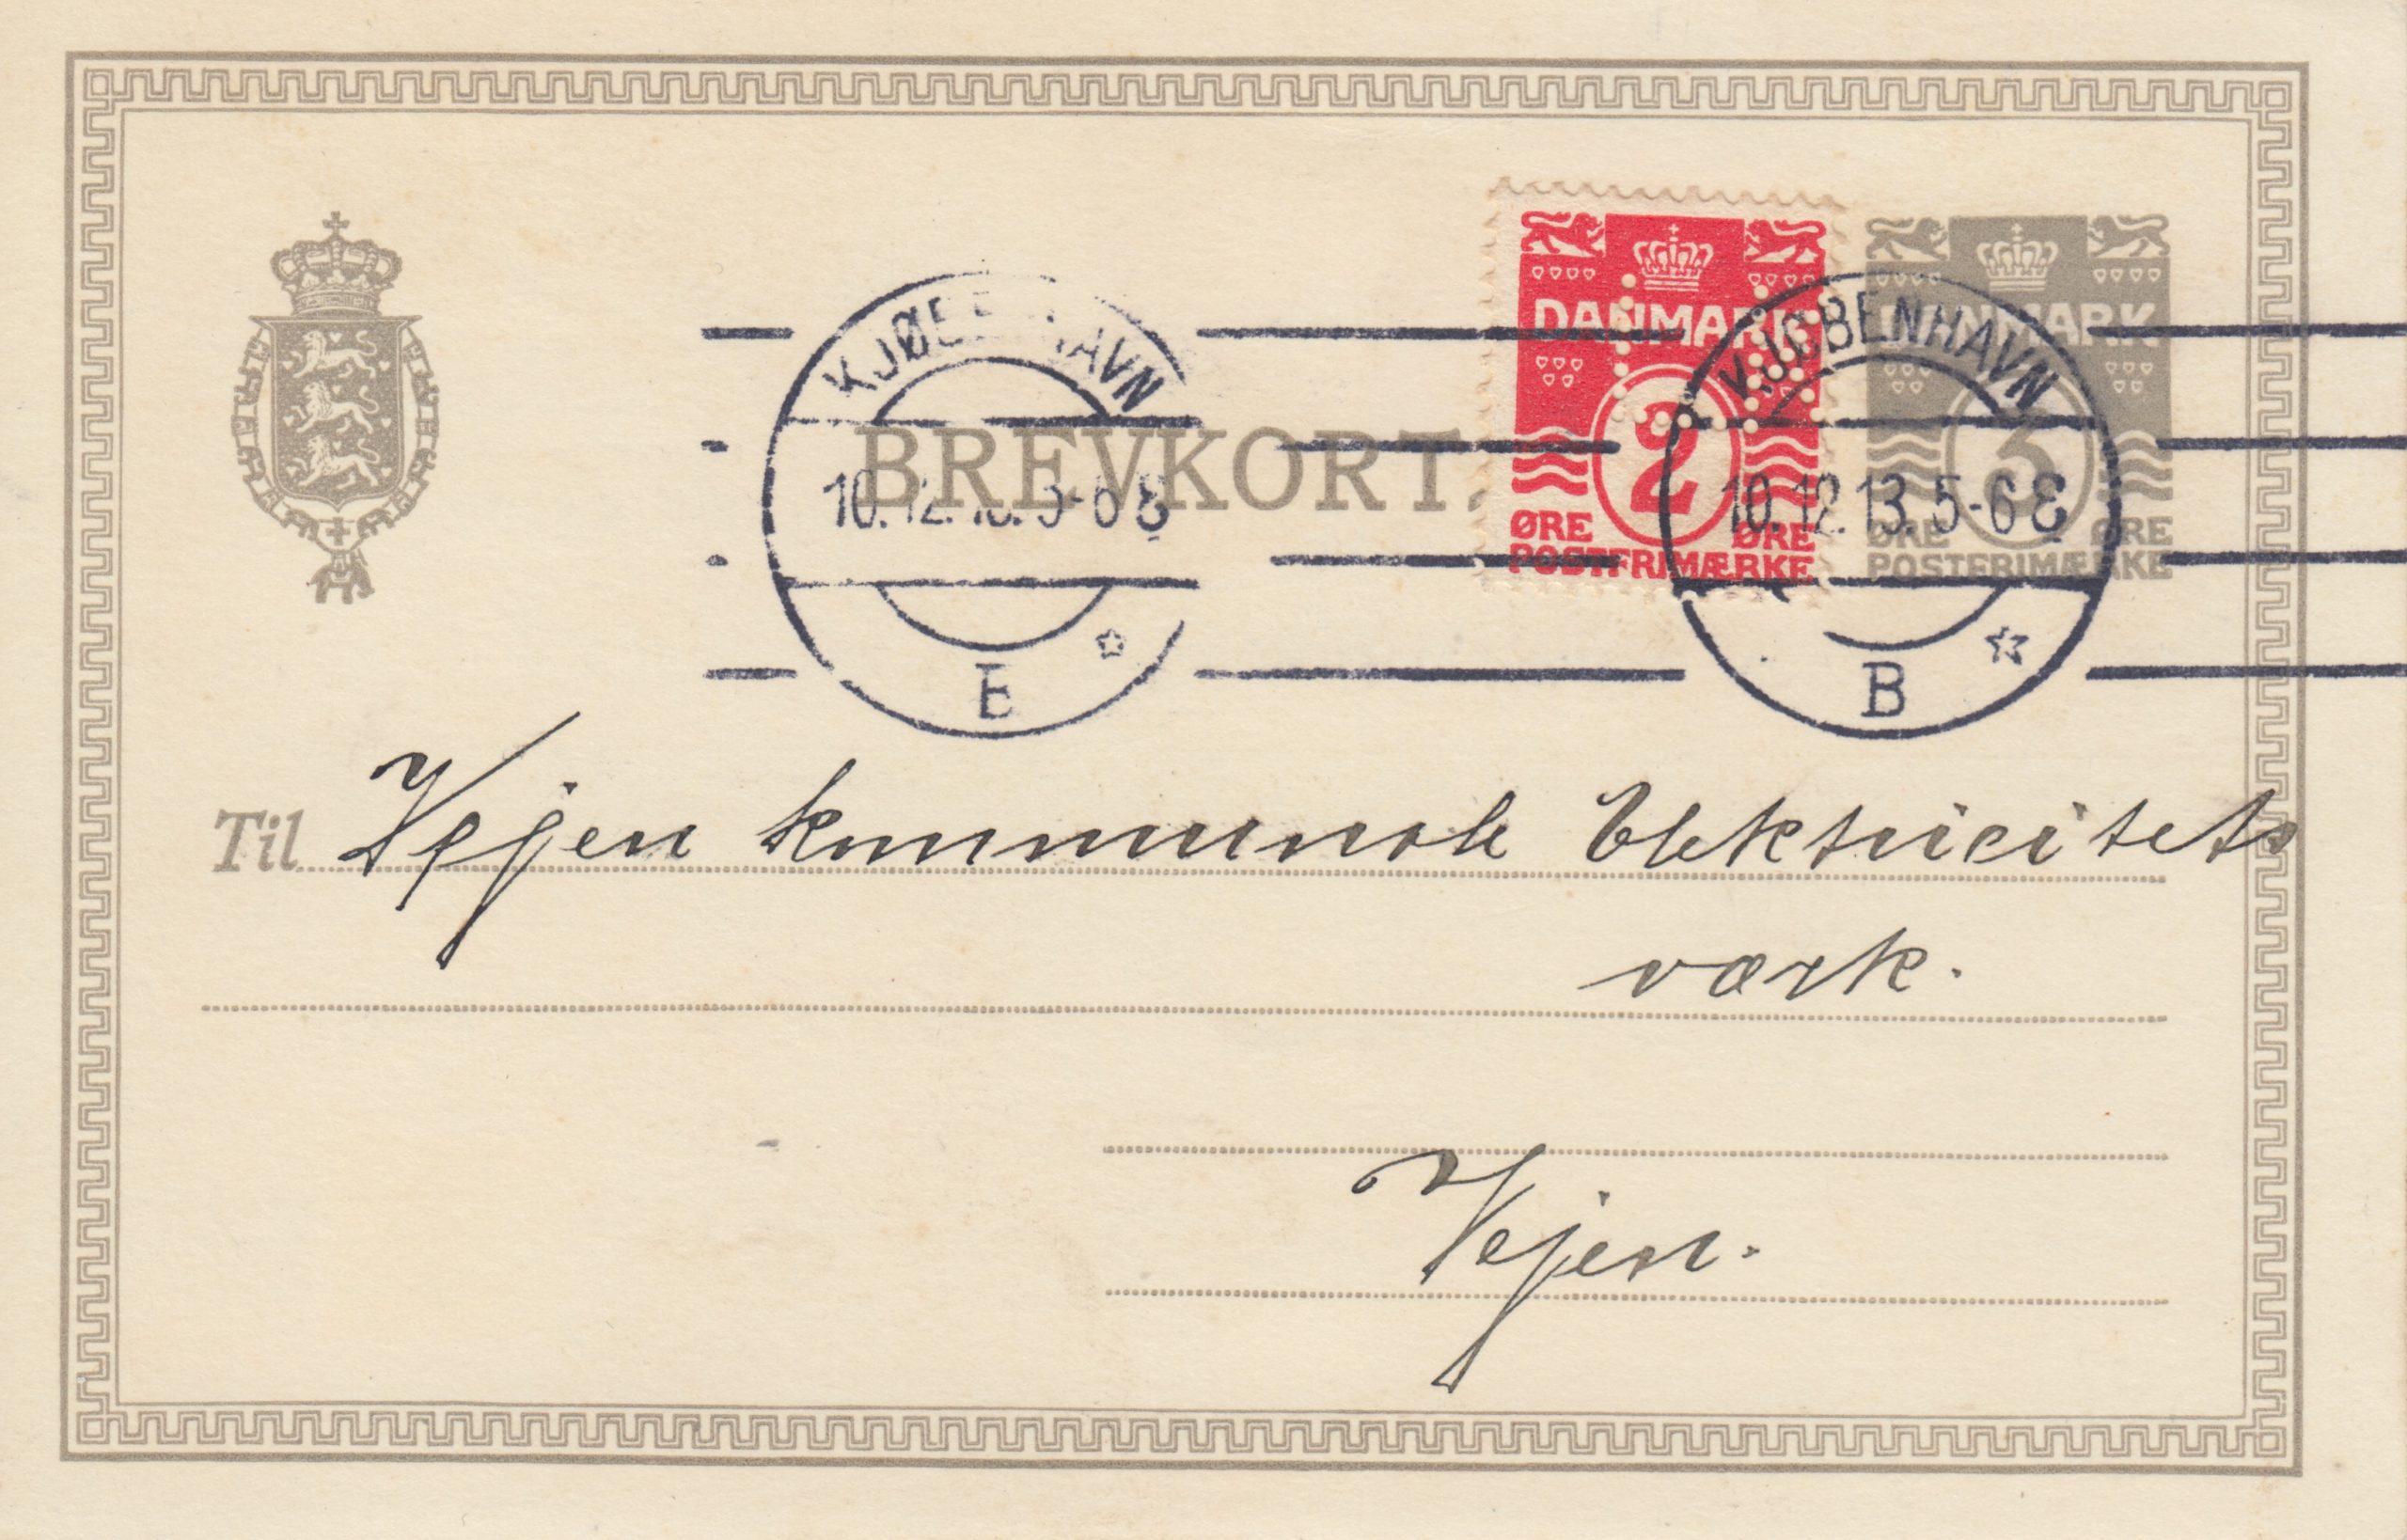 DANMARK
2
ØRE ØRE
POSTFRIMÆRKE
DANMARK
3
ØRE ØRE
POSTFRIMÆRKE
KJØBENHAVN
10.12.13. 5-6 E
B
BREVKORT.
KJØBENHAVN
10.12.13. 5-6 E
B
Til Vejen kommunale Elektricitets
værk.
Vejen.